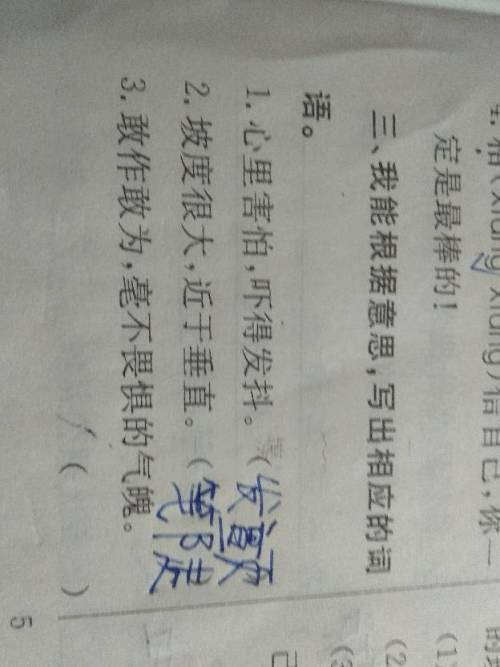 4.相(xiāng xiàng)信自己,你一
定是最棒的!
三、我能根据意思,写出相应的词
语。
1.心里害怕,吓得发抖。(发颤
2.坡度很大,近于垂直。(笔陡
3.敢作敢为,毫不畏惧的气魄。
( )
5
(1
(2
(3
己